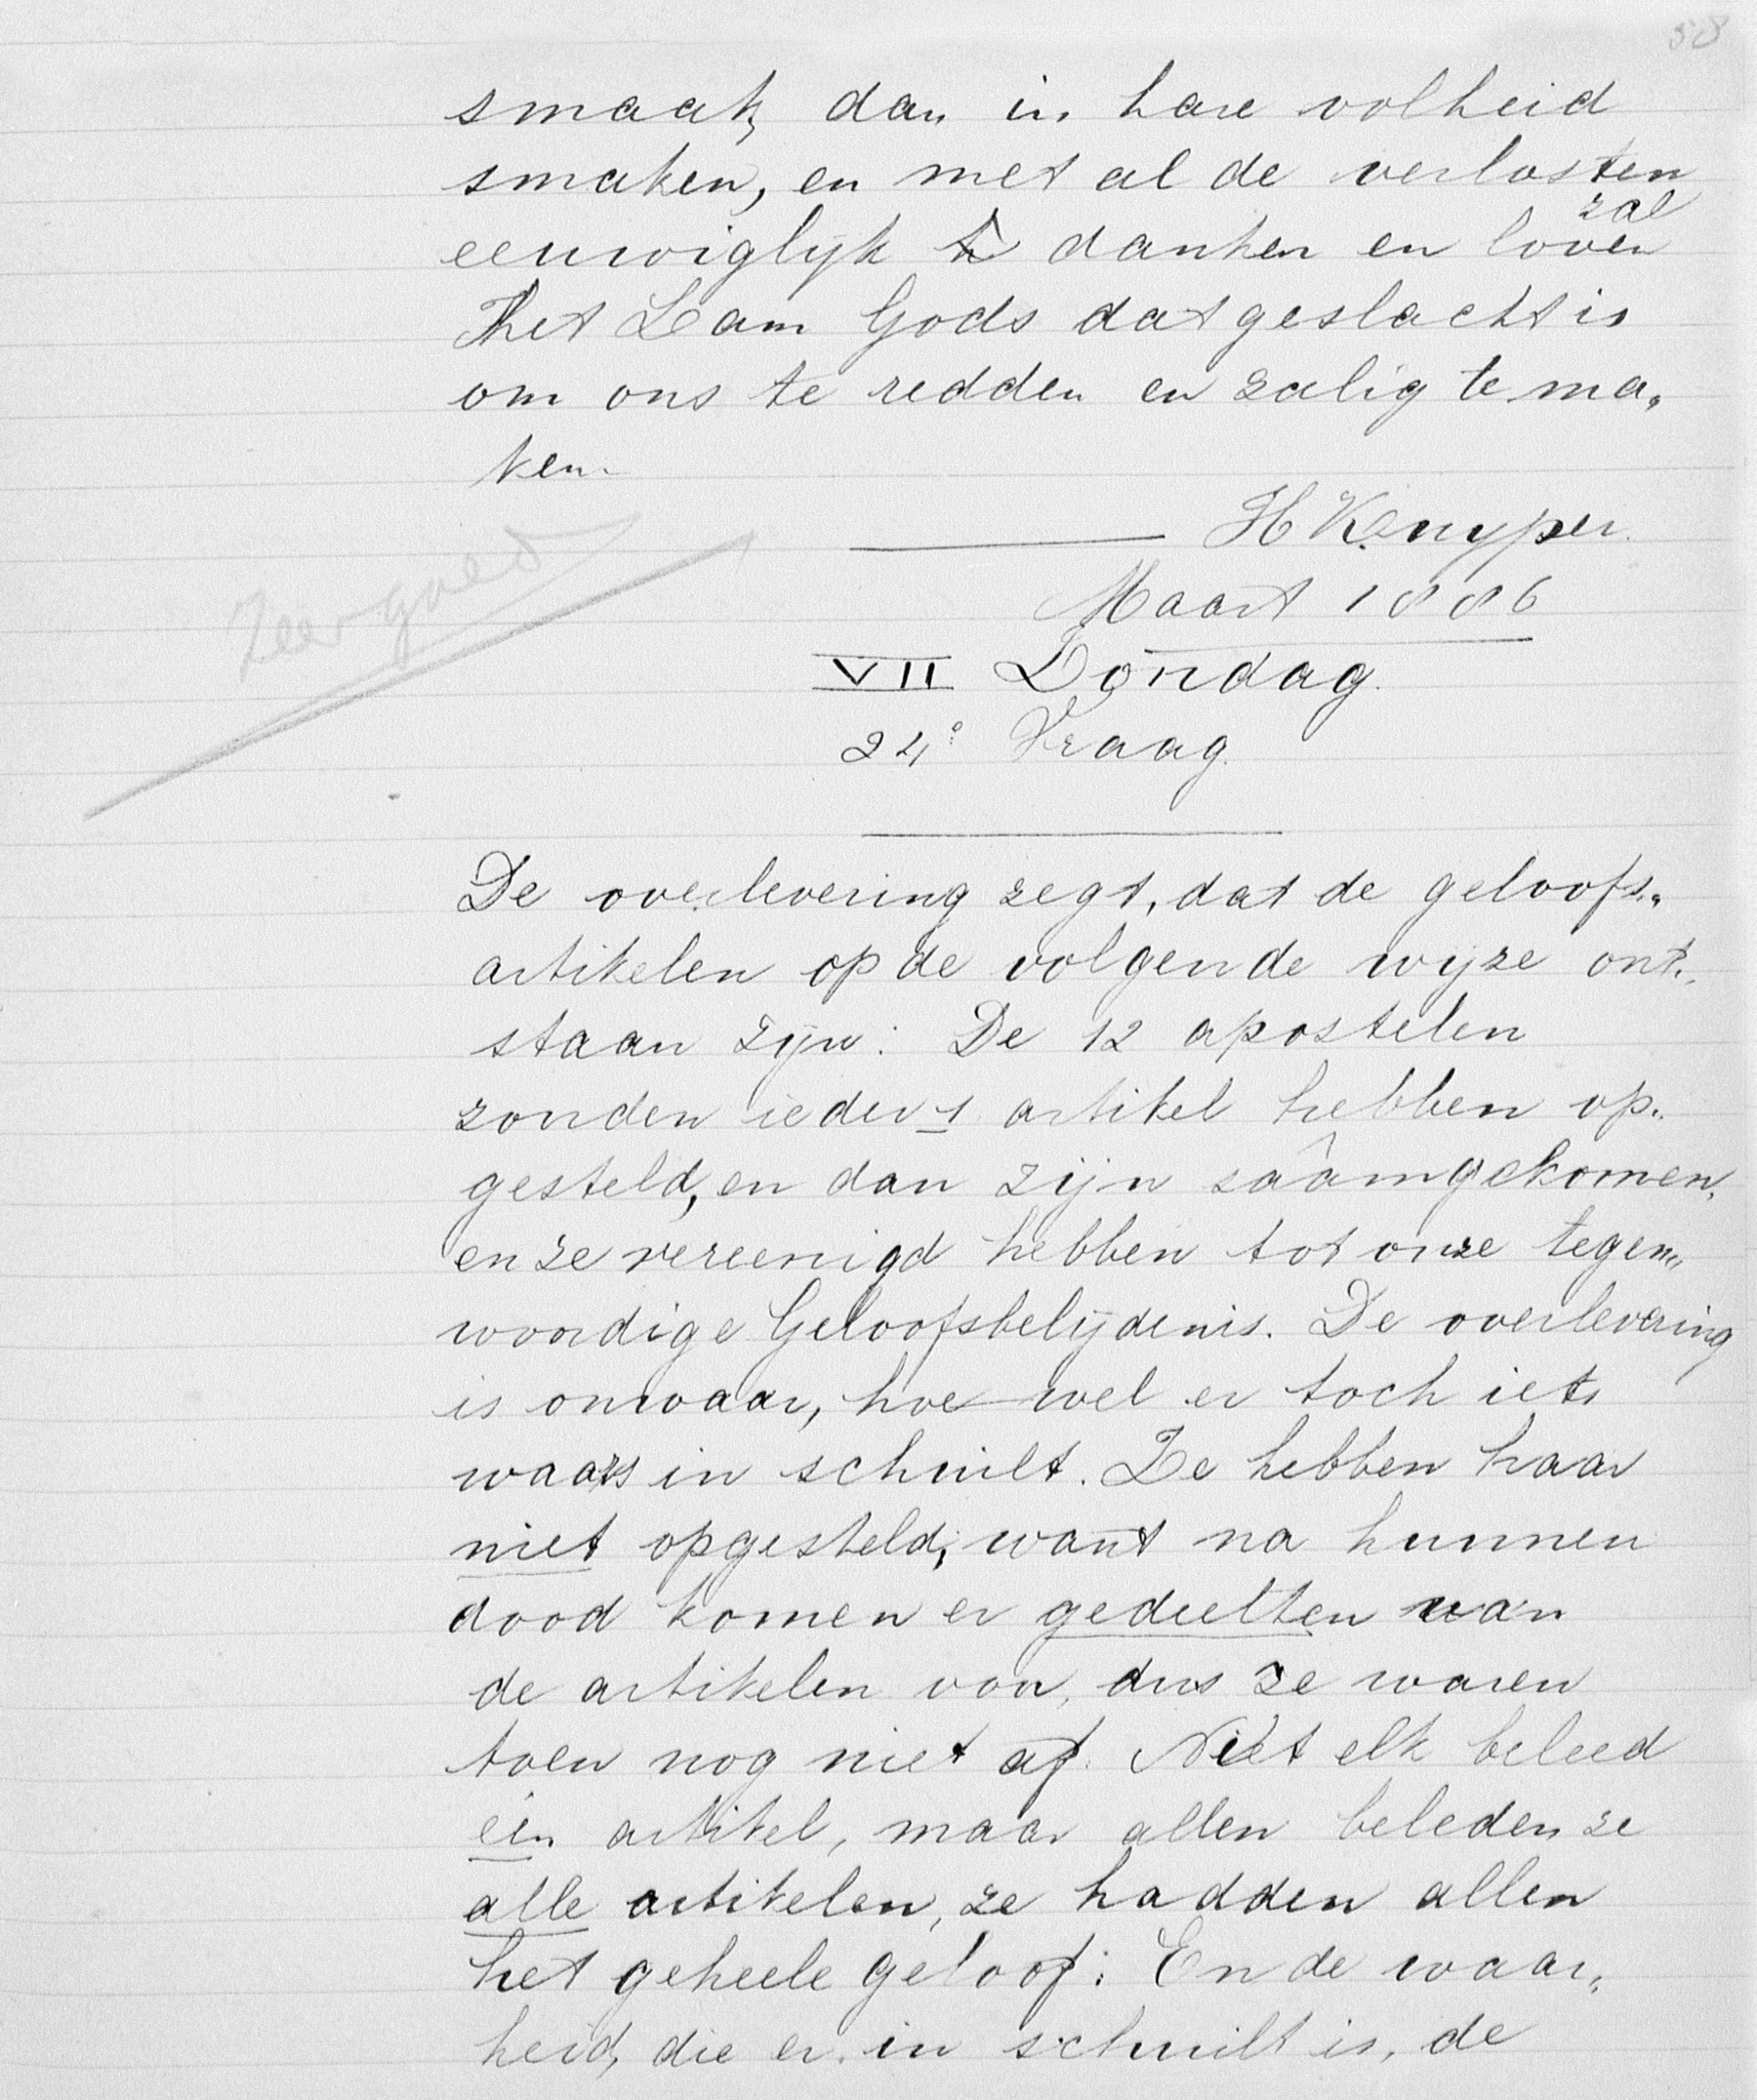 58
smaak, dan in hare volheid
smaken, en met al de verlosten
zal
eeuwiglijk danken en loven
het Lam Gods dat geslacht is
om ons te redden en zalig te ma„
ken.
H Kuyper.
Maart 1886
Zeer goed
VII Zondag.
24e Vraag.
De overlevering zegt, dat de geloofs„
artikelen op de volgende wijze ont„
staan zijn: De 12 apostelen
zouden ieder 1 artikel hebben op„
gesteld, en dan zijn saâmgekomen,
en ze vereenigd hebben tot onze tegen„
woordige Geloofsbelijdenis. De overlevering
is onwaar, hoewel er toch iets
waars in schuilt. Ze hebben haar
niet opgesteld, want na hunnen
dood komen er gedeelten van
de artikelen voor, dus ze waren
toen nog niet af. Niet elk beleed
één artikel, maar allen beleden ze
alle artikelen, ze hadden allen
het geheele geloof: En de waar„
heid, die er in schuilt is, de